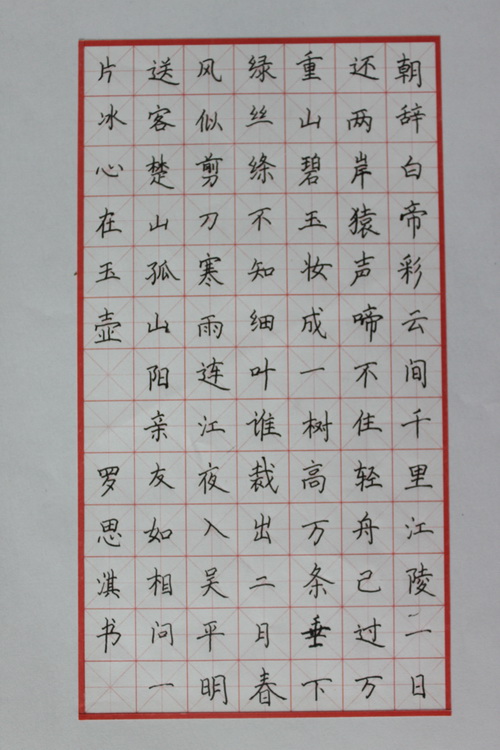 朝辞白帝彩云间千里江陵二日
还两岸猿声啼不住轻舟已过万
重山碧玉妆成一树高万条垂下
绿丝绦不知细叶谁裁出二月春
风似剪刀寒雨连江夜入吴平明
送客楚山孤山阳亲友如相问一
片冰心在玉壶 罗思淇书